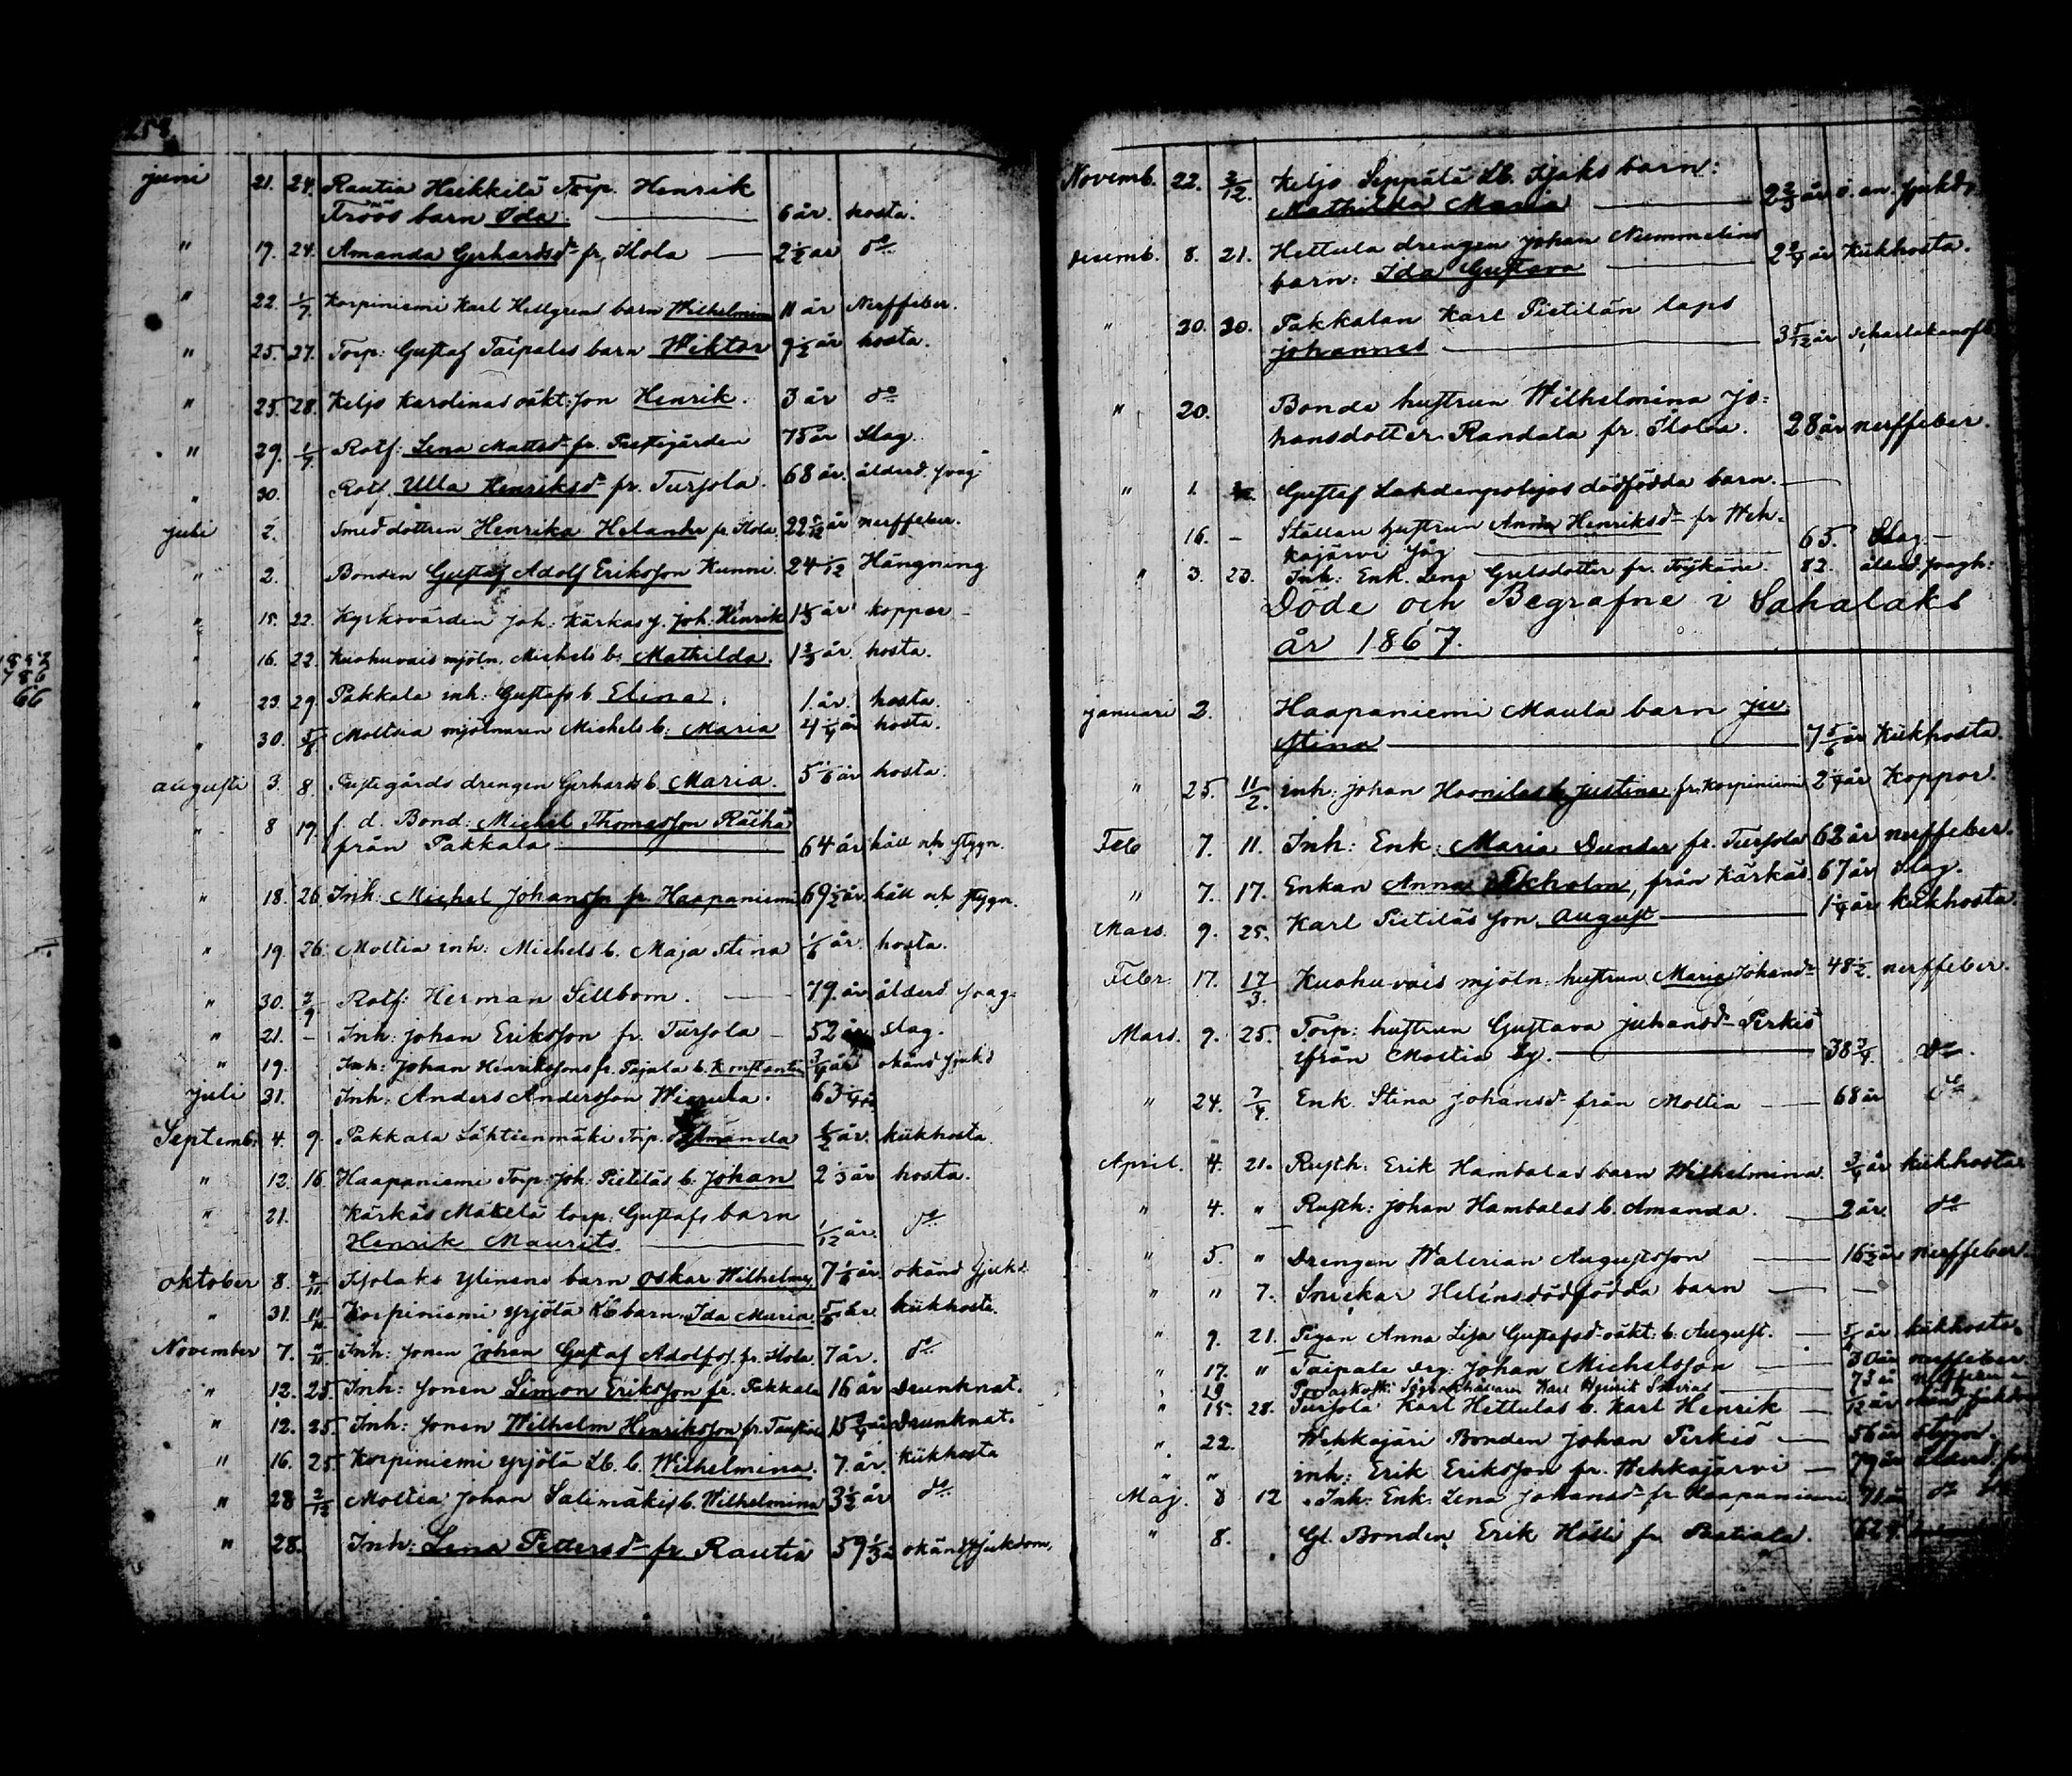 258
juni 21. 24. Rautia Heikkilä Torp. Henrik
Tröös barn Ida. 6 år. hosta.
" 19. 24. Amanda Gerhardsd. fr. Ilola 2 1/2 år do
" 22. 1/7 Korpiniemi Karl Hellgrens barn Wilhelmina 11 år Nerffeber.
" 25. 27. Torp: Gustaf Taipales barn Wiktor 9 1/2 år hosta.
" 25. 28. Keljo Karolinas oäkt: son Henrik. 3 år do
" 29. 1/7. Rotf: Lena Mattsd. fr. Prestgården 75 år Slag.
" 30. Rotf. Ulla Henriksd. fr. Tursola. 68 år. ålderd. svag:
juli 2. Smed dottren Henrika Helander fr. Ilola 22 år nerffeber.
" 2. Bonden Gustaf Adolf Eriksson Kunni. 24 1/12 Hängning
" 15. 22. Kyrkovärden Joh: Kärkas s. Joh: Henrik 1 1/3 år koppor
" 16. 22. Kuohuvais mjöln. Michels b. Mathilda. 1 2/3 år. hosta.
" 23. 29. Pakkala inh: Gustafs b. Elina. 1. år. hosta.
" 30. 5/8 Moltsia mjölnaren Michels b. Maria 4 1/4 år hosta.
augusti 3. 8. Prestegårds drengen Gerhards b. Maria. 5 1/6 år hosta.
" 8 19. f. d. Bond: Michel Thomasson Räihä
från Pakkala 64 år håll och stygn.
" 18. 26. Inh: Michel Johansson fr. Haapaniemi 69 1/2 år. håll och stygn.
" 19. 26. Moltia inh: Michels b. Maja Stina 1/6 år. hosta.
" 30. 2/9 Rotf: Herman Sillbom. 79. år ålderd. svag:
" 21. – Inh: Johan Eriksson fr. Tursola 52 år slag.
" 19. Inh: Johan Henrikssons fr. Pajala b. Konstantin 3/4 år okänd sjukd
juli 31. Inh: Anders Andersson Wierula. 63 1/4 år
Septemb: 4. 9. Pakkala Lähtienmäki Torp. Amanda 1/2 år. kikhosta.
" 12. 16. Haapaniemi Torp: Joh: Pietiläs b. Johan 2 1/3 år hosta.
" 21. Kärkäs Mäkelä torp: Gustafs barn
Henrik Maurits. 1/12 år. do
oktober 8. 4/11 Isolaks Ylinens barn Oskar Wilhelm 7 1/6 år. okänd sjukd.
" 31. 11/11 Korpiniemi Yrjölä Lb barn Ida Maria 5/6 år. kikhosta.
November 7. 11/11. Inh: sonen Johan Gustaf Adolfss. fr. Ilola 7 år. do
" 12. 25. Inh: sonen Simon Eriksson fr. Pakkala 16 år Drunknat.
" 12. 25. Inh: sonen Wilhelm Henriksson fr. 15 3/4 år Drunknat.
" 16. 25. Korpiniemi Yrjölä Lb. b. Wilhelmina. 7. år. Kikhosta
" 28 2/12 Moltia Johan Salimäkis b. Wilhelmina 3 1/2 år do
" 28. Inh: Lena Pettersd. fr. Rautia 59 1/3 å okänd sjukdom.
Novemb. 22. 2/12. Keljo Seppälä Lb. Isaks barn:
Mathilda Maria 2 2/3 år o. an. sjukd.
decemb. 8. 21. Hettula drengen Johan Nummelins
barn: Ida Gustava 2 3/4 år Kikhosta.
" 20. 30. Pakkalan Karl Pietilän laps
Johannes 3 5/12 år Scharlakansf.
" 20. Bonde hustrun Wilhelmina Jo:
hansdotter Randala fr. Ilola. 28 år nerffeber.
" 1. Gustaf Lahdenpohjas dödfödda barn.
" 16. – Ställare hustrun Anna Henriksd. fr. Weh-
kajärvi såg 65. Slag.
" 3. 23. Inh: Enk. Lena Grelsdotter fr. 82. ålderd. svagh:
Döde och Begrafne i Sahalaks
år 1867.
januari 2. Haapaniemi Maula barn Ju
stina 7 5/6 år Kikhosta.
" 25. 11/2. inh: Johan b. Justina fr. Korpiniemi 2 1/4 år Koppor.
Feb 7. 11. Inh: Enk: Maria Dunder fr. Tursola 62 år nerffeber.
" 7. 17. Enkan Anna Ekholm, från Kärkäs. 67 år Slag.
Mars. 9. 25. Karl Pietiläs son August 1 1/4 år kikhosta.
Febr. 17. 17/3. Kuohuvais mjöln: hustrun Maria Johansd. 48 1/2. nerffeber.
Mars. 9. 25. Torp: hustrun Gustava Juhansd. Perkiö
ifrån Moltia by. 38 3/4. do.
" 24. 7/4. Enk. Stina Johansd. från Moltia 68 år do
April. 4. 21. Rusth: Erik Hambalas barn Wilhelmina. 3/4 år kikhosta
" 4. " Rusth: Johan Hambalas b. Amanda. 2 år. do
" 5. " Drengen Walerian Augustsson 16 1/2 år nerffeber
" " 7. Snickar Helins dödfödda barn
" 9. 21. Pigan Anna Lisa Gustafsd. oäkt: b: August. år kikhosta.
" 17. " Taipale drg: Johan Michelsson 30 år nerffeber
" 19 Karl Henrik 73 å
" 15. 28. Tursola Karl Hettulas b. Karl Henrik 1/12 år okän sjukdom
" 22. Wehkajäri Bonden Johan Perkiö 56 år stygn.
" " inh: Erik Eriksson fr. Wehkajärvi 79 år ålderd.
Maj. 8 12 Inh: Enk: Lena Johansd. fr. Haapaniemi 71 år do
" 8. Gl. Bonden Erik Hölli fr. Pastiala. 62